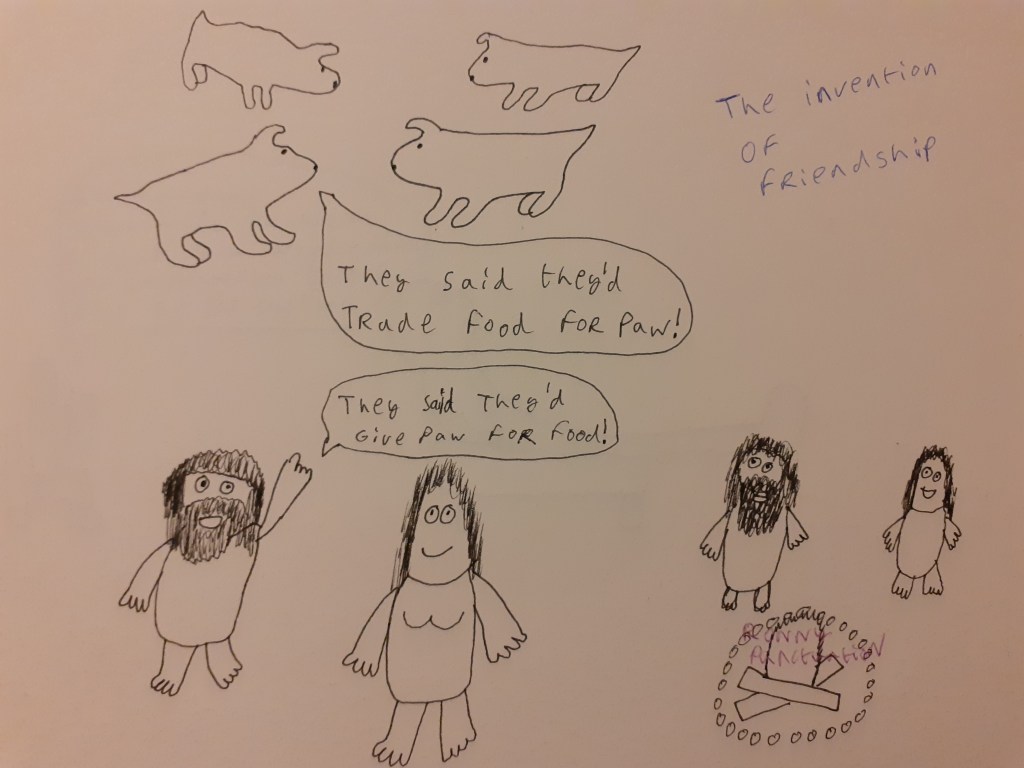 The invention
of
friendship
They said they'd
Trade food for paw!
They said They'd
Give paw for food!
Punctuation